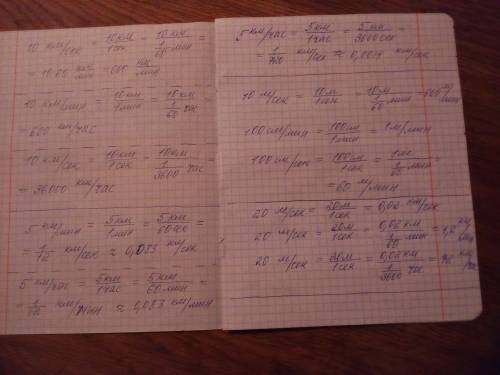 10 км/сек 10км/1сек = 10км/(1/60 мин) =
= 10·60 км/мин = 600 км/мин
10 км/мин = 10км/1мин = 10км/(1/60 час) =
= 600 км/час
10 км/сек = 10км/1сек = 10км/(1/3600 час) =
= 36000 км/час
5 км/мин = 5км/1мин = 5км/60сек =
= 1/12 км/сек ≈ 0,083 км/сек
5 км/час = 5км/1час = 5км/60мин =
= 1/12 км/мин ≈ 0,083 км/мин
5 км/час = 5км/1час = 5км/3600сек =
= 1/720 км/сек ≈ 0,0014 км/сек
10 м/сек = 10м/1сек = 10м/(1/60 мин) = 600 м/мин
100 см/мин = 100см/1мин = 1 м/мин
100 см/сек = 100см/1сек = 1м/(1/60 мин) =
= 60 м/мин
20 м/сек = 20м/1сек = 0,02 км/сек
20 м/сек = 20м/1сек = 0,02км/(1/60) = 1,2 км/мин
20 м/сек = 20м/1сек = 0,02км/(1/3600 час) = 72 км/час